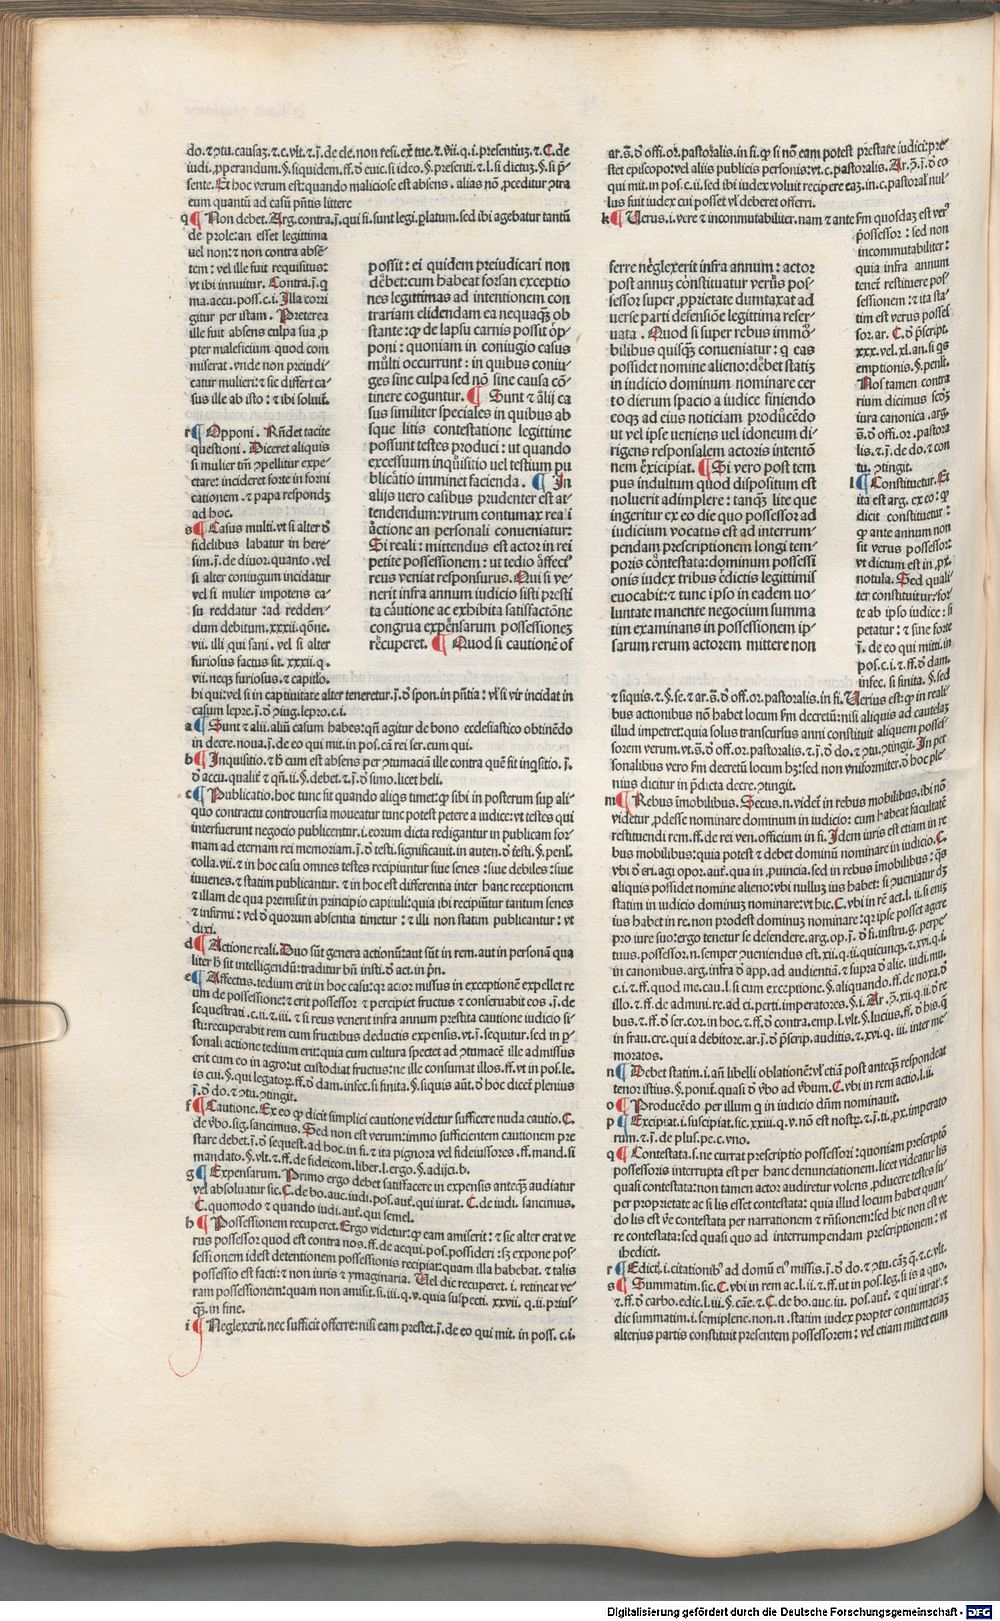 do. ⁊ ꝯtu. causaꝫ. ⁊.c. vlt. ⁊.j. de cle. non resi. ex tue. ⁊.vii. q. i. presentiuꝫ. ⁊. C. de
iudi. ꝓperandum. §. siquidem. ff. ð euic. si ideo. §. presenti. ⁊.l. si dictuꝫ. §. si p̄
sente. Et hoc verum est: quando maliciose est absens. alias nō ꝓceditur ꝯtra
eum quantū ad casū pn̄tis littere
q ¶ Non debet. Arg. contra.j. qui fi. sunt legi. ꝑ latum. sed ibi agebatur tantū
de prole: an esset legittima
uel non: ⁊ non contra absē-
tem: vel ille fuit requisitus:
vt ibi innuitur. Contra.j. q
ma. accu. poss. c. i. Illa corri
gitur per istam. Preterea
ille fuit absens culpa sua ꝓ
pter maleficium quod com
miserat. vnde non preiudi-
catur mulieri: ⁊ sic differt ca-
sus ille ab isto: ⁊ ibi soluit.
r ¶ Opponi. Rn̄det tacite
questioni. Diceret aliquis
si mulier tm̄ ꝯpellitur expe-
ctare: incideret forte in forni
cationem. ⁊ papa respondꝫ
ad hoc.
s ¶ Casus multi. vt si alter ð
fidelibus labatur in here-
sim.j. de diuor. quanto. vel
si alter coniugum incidatur
vel si mulier impotens ca-
su reddatur: ad redden-
dum debitum. xxxii. qōne.
vii. illi qui sani. vel si alter
furiosus factus sit. xxxii. q.
vii. neqꝫ furiosus. ⁊ capitlo.
hi qui: vel si in captiuitate alter teneretur.j. ð spon. in pn̄tia: vl' si vir incidat in
casum lepre.j. ð ꝯiug. lepro. c. i.
a ¶ Sunt ⁊ alii. aliū casum habes: qn̄ agitur de bono ecclesiastico obtinēdo
in decre. noua.j. de eo qui mit. in pos. cā rei ser. cum qui.
b ¶ Inquisitio. ⁊ h̄ cum est absens per ꝯtumaciā ille contra quē fit inq̄sitio. j.
ð accu. qualit̄ ⁊ qn̄. ii. §. debet. ⁊.j. ð simo. licet heli.
c ¶ Publicatio. hoc tunc fit quando aliqs timet: ꝙ sibi in posterum sup ali-
quo contractu controuersia moueatur tunc potest petere a iudice: vt testes qui
interfuerunt negocio publicentur. i. eorum dicta redigantur in publicam for-
mam ad eternam rei memoriam.j. ð testi. significauit. in auten. ð testi. §. penl'.
colla. vii. ⁊ in hoc casu omnes testes recipiuntur siue senes: siue debiles: siue
iuuenes. ⁊ statim publicantur. ⁊ in hoc est differentia inter hanc receptionem
⁊ illam de qua premisit in principio capituli: quia ibi recipiuntur tantum senes
⁊ infirmi: vel ð quorum absentia timetur: ⁊ illi non statim publicantur: vt
dixi.
d ¶ Actione reali. Duo sūt genera actionū: aut sūt in rem. aut in personā qua
liter h̄ sit intelligendū: traditur bn̄ insti. ð act. in pn̄.
e ¶ Affectus. tedium erit in hoc casu: qꝛ actor missus in exceptionē expellet re
um de possessione: ⁊ erit possessor ⁊ percipiet fructus ⁊ conseruabit eos .j. de
sequestrati. c. ii. ⁊. iii. ⁊ si reus venerit infra annum prestita cautione iudicio si-
sti: recuperabit rem cum fructibus deductis expensis. vt.j. sequitur. sed in ꝑ-
sonali actione tedium erit: quia cum cultura spectet ad ꝯtumacē ille admissus
erit cum eo in agro: ut custodiat fructus: ne ille consumat illos. ff. vt in pos. le.
is cui. §. qui legatoꝝ. ff. ð dam. infec. si finita. §. siquis aūt. ð hoc dicet plenius
j. ð do. ⁊ ꝯtu. ꝯtingit.
f ¶ Cautione. Ex eo ꝙ dicit simplici cautione videtur sufficere nuda cautio. C.
de v̄bo. sig. sancimus. Sed non est verum: immo sufficientem cautionem pre
stare debet.j. ð sequest. ad hoc. in fi. ⁊ ita pignora vel fideiussores. ff. mand. si
mandato. §. vlt. ⁊. ff. de fideicom. liber. l. ergo. §. adijci. b.
g ¶ Expensarum. Primo ergo debet satisfacere in expensis anteqꝫ audiatur
vel absoluatur sic. C. de bo. auc. iudi. pos. aut. qui iurat. C. de iudi. sancimus.
C. quomodo ⁊ quando iudi. aut. qui semel.
h ¶ Possessionem recuperet. Ergo videtur: ꝙ eam amiserit: ⁊ sic alter erat ve
rus possessor quod est contra nos. ff. de acqui. pos. possideri: sꝫ expone pos-
sessionem idest detentionem possessionis recipiat: quam illa habebat. ⁊ talis
possessio est facti: ⁊ non iuris ⁊ ymaginaria. Uel dic recuperet. i. retineat ve-
ram possessionem: quam non amisit. si. iii. q. v. quia suspecti. xxvii. q. ii. prius-
qꝫ. in fine.
i ¶ Neglexerit. nec sufficit offerre: nisi eam prestet.j. de eo qui mit. in poss. c. i.
possit: ei quidem preiudicari non
debet: cum habeat forsan exceptio
nes legittimas ad intentionem con
trariam elidendam ea nequaqꝫ ob
stante: qꝫ de lapsu carnis possit op-
poni: quoniam in coniugio casus
multi occurrunt: in quibus coniu-
ges sine culpa sed nō sine causa cō-
tinere coguntur. ¶ Sunt ⁊ alij ca
sus similiter speciales in quibus ab
sque litis contestatione legittime
possunt testes produci: ut quando
excessuum inquisitio uel testium pu
blicatio imminet facienda. ¶ In
alijs uero casibus prudenter est at-
tendendum: vtrum contumax reali
actione an personali conueniatur:
Si reali: mittendus est actor in rei
petite possessionem: ut tedio affect⁹
reus veniat responsurus. Qui si ve-
nerit infra annum iudicio sisti presti
ta cautione ac exhibita satisfactōne
congrua expensarum possessioneꝫ
recuperet. ¶ Quod si cautionē of
ar. s̄. ð offi. or. pastoralis. in fi. ꝙ si nō eam potest prestare iudici: pre-
stet episcopo: vel aliis publicis personis: vt. c. pastoralis. Ar. ꝯ.j. ð eo
qui mit. in pos. c. ii. sed ibi iudex voluit recipere eaꝫ. in. c. pastoral' nul-
lus fuit iudex cui posset vl' deberet offerri.
k ¶ Uerus. i. vere ⁊ inconmutabiliter. nam ⁊ ante fm̄ quosdaꝫ est ver⁹
possessor: sed non
incommutabiliter:
quia infra annum
tenet̄ restituere pos-
sessionem: ⁊ ita sta-
tim est verus posses
sor. ar. C. ð p̄script.
xxx. vel. xl. an. si qs
emptionis. §. penl'.
Nos tamen contra
rium dicimus scd̄ꝫ
iura canonica. arg.
s̄. ð offi. or. pastora
lis. ⁊.j. de do. ⁊ con
tu. ꝯtingit.
l ¶ Constituetur. Et
ita est arg. ex eo: ꝙ
dicit constituetur:
ꝙ ante annum non
sit verus possessor
vt dictum est in ꝓx.
notula. Sed quali
ter constituitur: for-
te ab ipso iudice: si
petatur: ⁊ sine forte
j. de eo qui mitti. in
pos. c. i. ⁊ ff. ð dam.
infec. si finita. §. sed
⁊ siquis. ⁊. §. se. ⁊ ar. s̄. ð off. or. pastoralis. in fi. Uerius est: ꝙ in reali
bus actionibus nō habet locum fm̄ decretū: nisi aliquis ad cautelaꝫ
illud impetret: quia solus transcursus anni constituit aliquem posses-
sorem verum. vt. s̄. ð off. or. pastoralis. ⁊.j. ð do. ⁊ ꝯtu. ꝯtingit. In per
sonalibus vero fm̄ decretū locum hꝫ: sed non vniformiter. ð hoc ple-
nius dicitur in p̄dicta decre. ꝯtingit.
m ¶ Rebus īmobilibus. Secus. n. videt̄ in rebus mobilibus. ibi nō
videtur ꝓdesse nominare dominum in iudicio: cum habeat facultatē
restituendi rem. ff. de rei ven. officium in fi. Idem iuris est etiam in re
bus mobilibus: quia potest ⁊ debet dominū nominare in iudicio. C.
vbi ð cri. agi opor. aut̄. qua in ꝓuincia. sed in rebus īmobilibus: qs
aliquis possidet nomine alieno: vbi nulluꝫ ius habet: si ꝯueniatur dꝫ
statim in iudicio dominuꝫ nominare: vt hic. C. vbi in rē act. l. ii. si eniꝫ
ius habet in re. non prodest dominuꝫ nominare: qꝛ ipse posset agere
pro iure suo: ergo tenetur se defendere. arg. op.j. ð fi. instru. g. perpe-
tuus. possessor. n. semper ꝯueniendus est. xii. q. ii. quicunqꝫ. ⁊. xvi. q. i.
in canonibus. arg. infra ð app. ad audientiā. ⁊ supra ð alie. iudi. mu.
c. i. ⁊ ff. quod me. cau. l. si cum exceptione. §. aliquando. ff. de noxa. ð
illo. ⁊ ff. de admini. re. ad ci. perti. imperatores. §. i. Ar. ꝯ. xii. q. ii. ð re
bus. ⁊ ff. ð ser. coꝫ. in hoc. ⁊ ff. ð contra. emp. l. vlt. §. lucius. ff. ð his. q̄
in frau. cre. qui a debitore. ar.j. ð p̄scrip. auditis. ⁊. xvi. q. iii. inter me-
moratos.
n ¶ Debet statim. i. añ libelli oblationē: vl' etiā post anteqꝫ respondeat
tenor istius. §. ponūt. quasi ð v̄bo ad v̄bum. C. vbi in rem actio. l. ii.
o ¶ Producēdo per illum q in iudicio dn̄m nominauit.
p ¶ Excipiat. i. suscipiat. sic. xxiii. q. v. nō est nostꝝ. ⁊.j. ti. ꝓx. imperato
rum. ⁊.j. de plus pe. c. vno.
q ¶ Contestata. s. ne currat prescriptio possessori: quoniam prescriptō
possessoris interrupta est per hanc denunciationem. licet videatur lis
quasi contestata: non tamen actor audiretur volens ꝓducere testes su-
per proprietate ac si lis esset contestata: quia illud locum habet quan-
do lis est v̄e contestata per narrationem ⁊ rn̄sionem: sed hic non est ve
re contestata: sed quasi quo ad interrumpendam prescriptionem: vt
ibedicit.
r ¶ Edict̄. i. citationib⁹ ad domū ei⁹ missis.j. ð do. ⁊ ꝯtu. caꝫ q̄. ⁊ c. vlt.
s ¶ Summatim. sic. C. vbi in rem ac. l. ii. ⁊ ff. ut in pos. leg. si is a quo.
⁊ ff. ð carbo. edic. l. iii. §. cāe. ⁊. C. de bo. auc. iu. pos. aut̄. ⁊ qui iurat. ⁊
dic summatim. i. semiplene. non. n. statim iudex propter contumaciaꝫ
alterius partis constituit presentem possessorem: vel etiam mittet eum
ferre neglexerit infra annum: actor
post annuꝫ cōstituatur verus pos-
sessor super ꝓprietate dumtaxat ad
uerse parti defensiōe legittima reser-
uata. Quod si super rebus immo-
bilibus quisqꝫ conueniatur: q eas
possidet nomine alieno: debet statiꝫ
in iudicio dominum nominare cer
to dierum spacio a iudice finiendo
eoqꝫ ad eius noticiam producēdo
ut vel ipse ueniens uel idoneum di-
rigens responsalem actoris intentō
nem excipiat. ¶ Si vero post tem
pus indultum quod dispositum est
noluerit adimplere: tanqꝫ lite que
ingeritur ex eo die quo possessor ad
iudicium vocatus est ad interrum-
pendam prescriptionem longi tem-
poris cōtestata: dominum possessi
onis iudex tribus edictis legitimis
euocabit: ⁊ tunc ipso in eadem uo-
luntate manente negocium summa
tim examinans in possessionem ip-
sarum rerum actorem mittere non
Digitalisierung gefördert durch die Deutsche Forschungsgemeinschaft - DFG